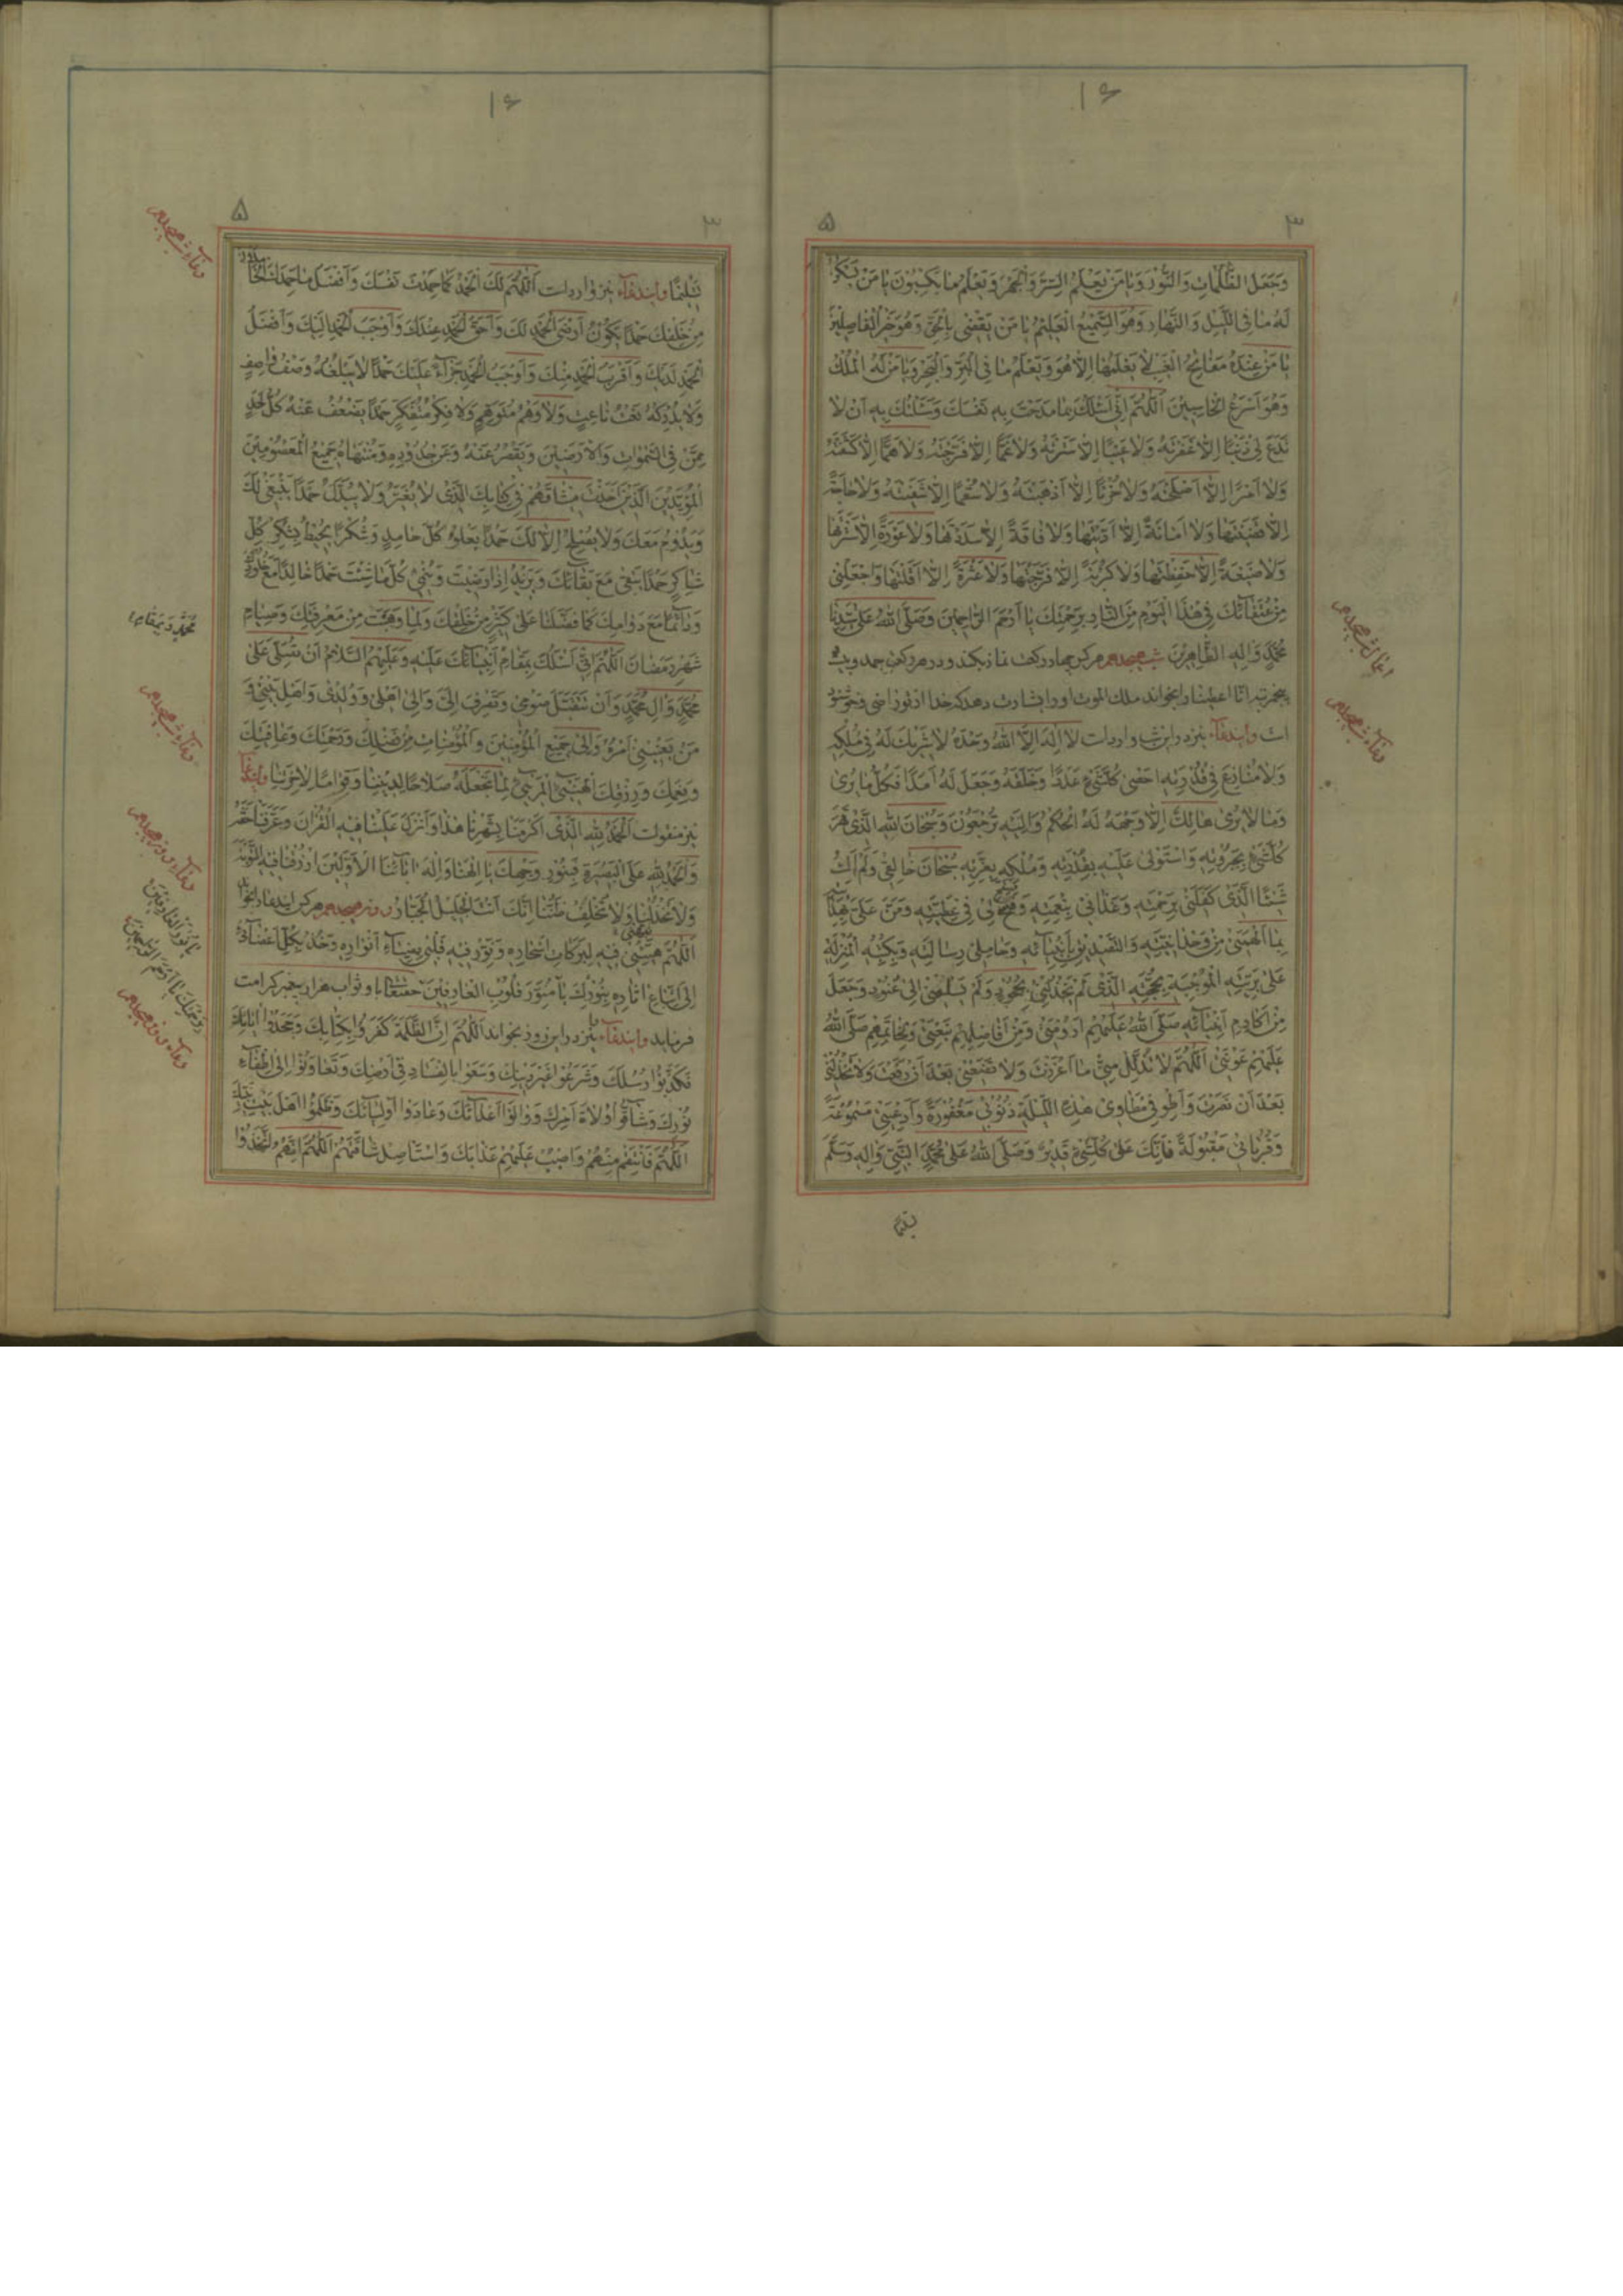 ۱۶
۳
۵
وَجَعَلَ الظُّلُمَاتِ وَالنُّوْرَ وَيَا مَنْ يَعْلَمُ السِّرَّ وَالْجَهْرَ وَيَعْلَمُ مَا تَكْسِبُونَ يَا مَنْ
لَهُ مَا فِي اللَّيْلِ وَالنَّهَارِ وَهُوَ السَّمِيْعُ الْعَلِيمُ يَا مَنْ يَقْضِي بِالْحَقِّ وَهُوَ خَيْرُ الْفَاصِلِيْنَ
يَا مَنْ عِنْدَهُ مَفَاتِحُ الْغَيْبِ لَا يَعْلَمُهَا اِلَّا هُوَ وَيَعْلَمُ مَا فِي الْبَرِّ وَالْبَحْرِ وَيَا مَنْ لَهُ الْمُلْكُ
وَهُوَ اَسْرَعُ الْحَاسِبِيْنَ اَللّٰهُمَّ اِنِّي اَسْئَلُكَ بِمَا مَدَحْتَ بِهِ نَفْسَكَ وَسَئَلْتُكَ بِهِ اَنْ لَا
تَدَعَ لِي ذَنْبًا اِلَّا غَفَرْتَهُ وَلَا عَيْبًا اِلَّا سَتَرْتَهُ وَلَا غَمًّا اِلَّا فَرَّجْتَهُ وَلَا هَمًّا اِلَّا كَشَفْتَهُ
وَلَا اَمْرًا اِلَّا اَصْلَحْتَهُ وَلَا حُزْنًا اِلَّا اَذْهَبْتَهُ وَلَا سُقْمًا اِلَّا شَفَيْتَهُ وَلَا حَاجَةً
اِلَّا قَضَيْتَهَا وَلَا اَمَانَةً اِلَّا اَدَّيْتَهَا وَلَا فَاقَةً اِلَّا سَدَدْتَهَا وَلَا عَوْرَةً اِلَّا سَتَرْتَهَا
وَلَا ضَيْعَةً اِلَّا حَفِظْتَهَا وَلَا كُرْبَةً اِلَّا فَرَّجْتَهَا وَلَا عَثْرَةً اِلَّا اَقَلْتَهَا وَاجْعَلْنِي
مِنْ عُتَقَائِكَ فِي هٰذَا الْيَوْمِ مِنَ النَّارِ بِرَحْمَتِكَ يَا اَرْحَمَ الرَّاحِمِيْنَ وَصَلَّى اللّٰهُ عَلَى سَيِّدِنَا
مُحَمَّدٍ وَالِهِ الطَّاهِرِيْنَ شب هيجدهم هركس چهار ركعت نماز بكند و در هر ركعتى حمد و بيست
پنج مرتبه انا اعطينا را بخواند ملك الموت او را بشارت دهد كه خدا از تو راضى و خوشنود
است و ايندعاء نيز در اين شب وارد است لَا اِلٰهَ اِلَّا اللّٰهُ وَحْدَهُ لَا شَرِيْكَ لَهُ فِي مُلْكِهِ
وَلَا مُنَازِعَ فِي قُدْرَتِهِ اَحْصٰى كُلَّ شَيْءٍ عَدَدًا وَخَلَقَهُ وَجَعَلَ لَهُ اَمَدًا فَكُلُّ مَا يُرٰى
وَمَا لَا يُرٰى هَالِكٌ اِلَّا وَجْهَهُ لَهُ الْحُكْمُ وَاِلَيْهِ تُرْجَعُوْنَ وَسُبْحَانَ اللّٰهِ الَّذِي قَهَرَ
كُلَّ شَيْءٍ بِجَبَرُوْتِهِ وَاسْتَوْلٰى عَلَيْهِ بِقُدْرَتِهِ وَمَلَكَهُ بِعِزَّتِهِ سُبْحَانَ خَالِقِي وَلَمْ اَكُ
شَيْئًا الَّذِي كَفَلَنِي بِرَحْمَتِهِ وَغَذَّانِي بِنِعْمَتِهِ وَفَسَحَ لِي فِي عَطِيَّتِهِ وَمَنَّ عَلَيَّ
بِمَا اَلْهَمَنِي مِنْ وَحْدَانِيَّتِهِ وَالتَّصْدِيْقِ بِاَنْبِيَائِهِ وَحَامِلِي رِسَالَتِهِ وَبِكُتُبِهِ الْمُنْزَلَةِ
عَلٰى بَرِيَّتِهِ الْمُوْجِبَةِ بِحُجَّتِهِ الَّذِي لَمْ يَخْذُلْنِي بِجُحُوْدٍ وَلَمْ يُسْلِمْنِي اِلٰى عُنُوْدٍ وَجَعَلَ
مِنْ اَكَارِمِ اَنْبِيَائِهِ صَلَّى اللّٰهُ عَلَيْهِمْ اَرُوْمَتِي وَمِنْ اَفَاضِلِهِمْ نَبْعَتِي وَلِخَاتَمِهِمْ صَلَّى اللّٰهُ
عَلَيْهِمْ عَوْنَتِي اَللّٰهُمَّ لَا تُذَلِّلْ مِنِّي مَا اَعْزَزْتَ وَلَا تَضَعْنِي بَعْدَ اَنْ رَفَعْتَ وَلَا تَخْذُلْنِي
بَعْدَ اَنْ نَصَرْتَ وَاطْوِ فِي مَطَاوِي هٰذِهِ اللَّيْلَةِ ذُنُوْبِي مَغْفُوْرَةً وَاَدْعِيَتِي مَسْمُوْعَةً
وَقُرُبَاتِي مَقْبُوْلَةً فَاِنَّكَ عَلٰى كُلِّ شَيْءٍ قَدِيْرٌ وَصَلَّى اللّٰهُ عَلٰى مُحَمَّدٍ النَّبِيِّ وَالِهِ وَسَلَّمَ
تسليما
اعمال شب هيجدهم
دعاء شب هيجدهم
۱۶
۳
۵
تَسْلِيْمًا و ايندعاء نيز وارد است اَللّٰهُمَّ لَكَ الْحَمْدُ كَمَا حَمِدْتَ نَفْسَكَ وَاَفْضَلَ مَا حَمِدَكَ الْحَامِدُوْنَ
مِنْ خَلْقِكَ حَمْدًا يَكُوْنُ اَرْضَى الْحَمْدِ لَكَ وَاَحَقَّ الْحَمْدِ عِنْدَكَ وَاَوْجَبَ الْحَمْدِ اِلَيْكَ وَاَفْضَلَ
الْحَمْدِ لَدَيْكَ وَاَقْرَبَ الْحَمْدِ مِنْكَ وَاَوْجَبَ الْحَمْدِ جَزَاءً عَلَيْكَ حَمْدًا لَا يَبْلُغُهُ وَصْفُ وَاصِفٍ
وَلَا يُدْرِكُهُ نَعْتُ نَاعِتٍ وَلَا وَهْمُ مُتَوَهِّمٍ وَلَا فِكْرُ مُتَفَكِّرٍ حَمْدًا يَضْعُفُ عَنْهُ كُلُّ اَحَدٍ
مِمَّنْ فِي السَّمٰوَاتِ وَالْاَرَضِيْنَ وَيَقْصُرُ عَنْهُ وَعَنْ حُدُوْدِهِ وَمُنْتَهَاهُ جَمِيْعُ الْمَعْصُوْمِيْنَ
الْمُؤَيَّدِيْنَ الَّذِيْنَ اَخَذْتَ مِيْثَاقَهُمْ فِي كِتَابِكَ الَّذِي لَا يُغَيَّرُ وَلَا يُبَدَّلُ حَمْدًا يَنْبَغِي لَكَ
وَيَدُوْمُ مَعَكَ وَلَا يَصْلُحُ اِلَّا لَكَ حَمْدًا يَعْلُو كُلَّ حَامِدٍ وَشُكْرًا يُحِيْطُ بِشُكْرِ كُلِّ
شَاكِرٍ حَمْدًا يَبْقٰى مَعَ بَقَائِكَ وَيَزِيْدُ اِذَا رَضِيْتَ وَيُنْمٰى كُلَّمَا شِئْتَ حَمْدًا خَالِدًا مَعَ خُلُوْدِكَ
وَدَائِمًا مَعَ دَوَامِكَ كَمَا فَضَّلْتَنَا عَلٰى كَثِيْرٍ مِنْ خَلْقِكَ وَلِمَا وَهَبْتَ مِنْ مَعْرِفَتِكَ وَصِيَامِ
شَهْرِ رَمَضَانَ اَللّٰهُمَّ اِنِّي اَسْئَلُكَ بِمَقَامِ اَنْبِيَائِكَ عَلَيْهِ وَعَلَيْهِمُ السَّلَامُ اَنْ تُصَلِّيَ عَلٰى
مُحَمَّدٍ وَالِ مُحَمَّدٍ وَاَنْ تَتَقَبَّلَ صَوْمِي وَتَصْرِفَ اِلَيَّ وَاِلٰى اَهْلِي وَوُلْدِي وَاَهْلِ بَيْتِي وَ
مَنْ يَعْنِيْنِي اَمْرُهُ وَاِلٰى جَمِيْعِ الْمُؤْمِنِيْنَ وَالْمُؤْمِنَاتِ مِنْ فَضْلِكَ وَرَحْمَتِكَ وَعَافِيَتِكَ
وَنِعَمِكَ وَرِزْقِكَ الْهَنِيْءِ الْمَرِيْءِ مَا تَجْعَلُهُ صَلَاحًا لِدِيْنِنَا وَقِوَامًا لِاٰخِرَتِنَا و ايندعاء
نيز منقولست اَلْحَمْدُ لِلّٰهِ الَّذِي اَكْرَمَنَا بِشَهْرِنَا هٰذَا وَاَنْزَلَ عَلَيْنَا فِيْهِ الْقُرْاٰنَ وَعَرَّفَنَا حَقَّهُ
وَالْحَمْدُ لِلّٰهِ عَلَى الْبَصِيْرَةِ فَبِنُوْرِ وَجْهِكَ يَا اِلٰهَنَا وَاِلٰهَ اٰبَائِنَا الْاَوَّلِيْنَ ارْزُقْنَا فِيْهِ التَّوْبَةَ
وَلَا تَخْذُلْنَا وَلَا تُخْلِفْ ظَنَّنَا اِنَّكَ اَنْتَ الْجَلِيْلُ الْجَبَّارُ روز هيجدهم هركس ايندعا را بخواند
اَللّٰهُمَّ نَبِّهْنِي فِيْهِ لِبَرَكَاتِ اَسْحَارِهِ وَنَوِّرْ فِيْهِ قَلْبِي بِضِيَاءِ اَنْوَارِهِ وَخُذْ بِكُلِّ اَعْضَائِي
اِلَى اتِّبَاعِ اٰثَارِهِ بِنُوْرِكَ يَا مُنَوِّرَ قُلُوْبِ الْعَارِفِيْنَ حقتعالى باو ثواب هزار پيغمبر كرامت
فرمايد و ايندعاء نيز در اين روز بخواند اَللّٰهُمَّ اِنَّ الظَّلَمَةَ كَفَرُوْا بِكِتَابِكَ وَجَحَدُوْا اٰيَاتِكَ
وَكَذَّبُوْا رُسُلَكَ وَشَرَعُوْا غَيْرَ دِيْنِكَ وَسَعَوْا بِالْفَسَادِ فِي اَرْضِكَ وَتَعَاوَنُوْا اِلٰى اِطْفَاءِ
نُوْرِكَ وَشَاقُّوْا وُلَاةَ اَمْرِكَ وَوَالَوْا اَعْدَائَكَ وَعَادَوْا اَوْلِيَائَكَ وَظَلَمُوْا اَهْلَ بَيْتِ نَبِيِّكَ
اَللّٰهُمَّ فَانْتَقِمْ مِنْهُمْ وَاصْبُبْ عَلَيْهِمْ عَذَابَكَ وَاسْتَاْصِلْ شَاْفَتَهُمْ اَللّٰهُمَّ اِنَّهُمْ اتَّخَذُوْا
دعاء شب هيجدهم
دعاء شب هيجدهم
دعاء روز هيجدهم
دعاء روز هيجدهم